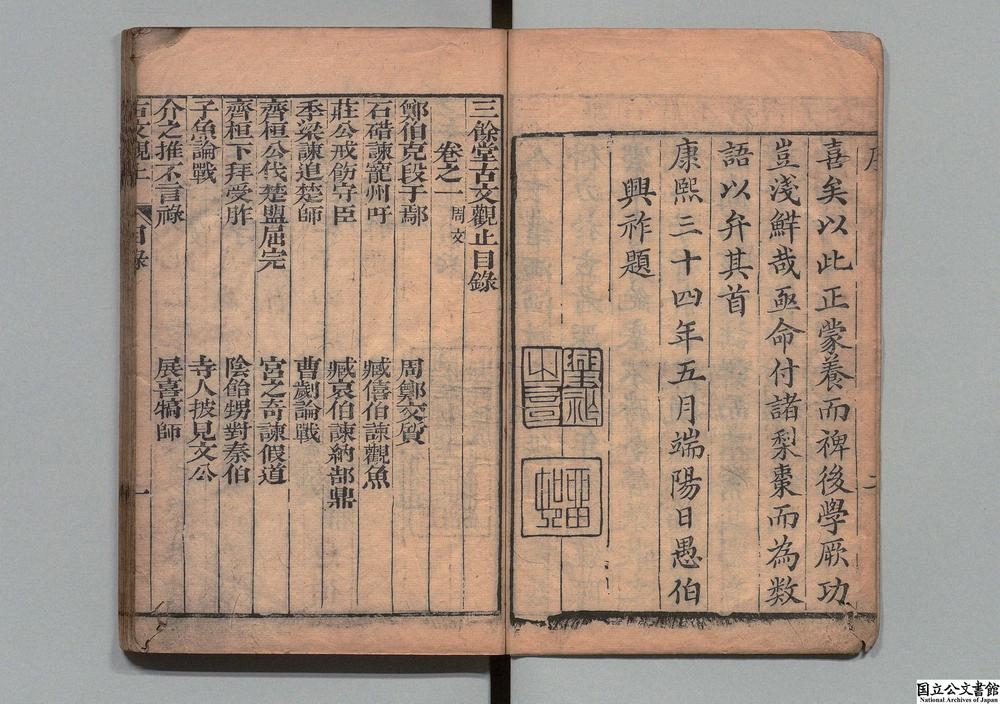 序
喜矣以此正蒙養而裨後學厥功
豈淺鮮哉亟命付諸梨棗而為数
語以弁其首
康熙三十四年五月端陽日愚伯
興祚題
二
三餘堂古文觀止目錄
卷之一 周文
鄭伯克段于鄢 周鄭交質
石碏諫寵州吁 臧僖伯諫觀魚
莊公戒飭守臣 臧哀伯諫納郜鼎
季梁諫追楚師 曹劌論戰
齊桓公伐楚盟屈完 宮之奇諫假道
齊桓下拜受胙 陰飴甥對秦伯
子魚論戰 寺人披見文公
介之推不言祿 展喜犒師
古文觀止 目錄 一
国立公文書館
National Archives of Japan